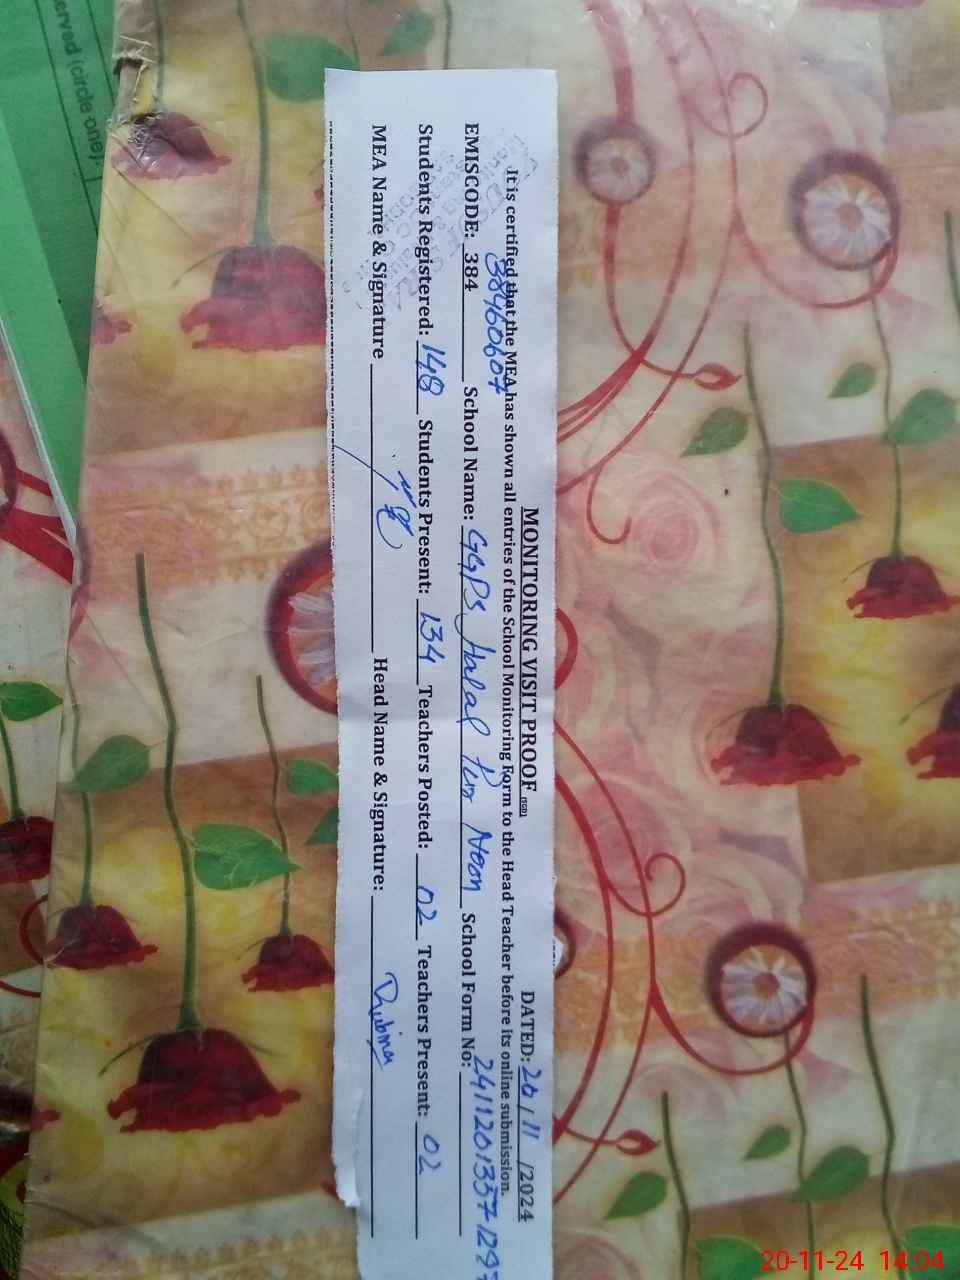 MONITORING VISIT PROOF (SED) DATED: 20/11/2024
It is certified that the MEA has shown all entries of the School Monitoring Form to the Head Teacher before its online submission.
38460607
EMISCODE: 384 School Name: GGPS Jalal Pur Noon School Form No: 2411201357129
Students Registered: 148 Students Present: 134 Teachers Posted: 02 Teachers Present: 02
MEA Name & Signature Head Name & Signature: Rubina
erved (circle one):
20-11-24 14:04